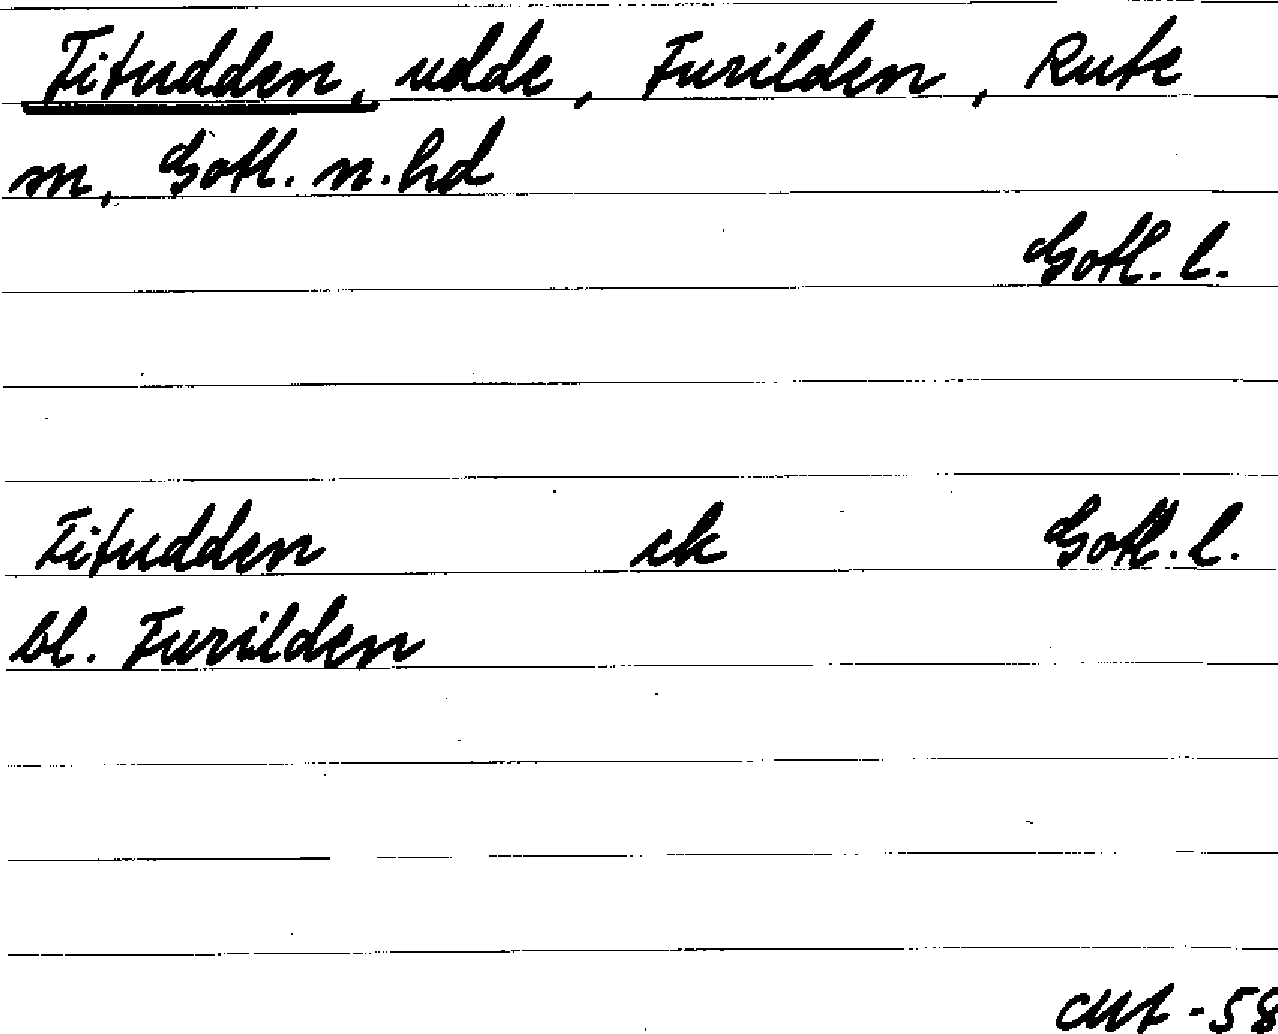 Fitudden, udde, Furilden, Rute
m, Gotl. n. hd
Gotl. l.
Fitudden ek Gotl. l.
bl. Furilden
-58